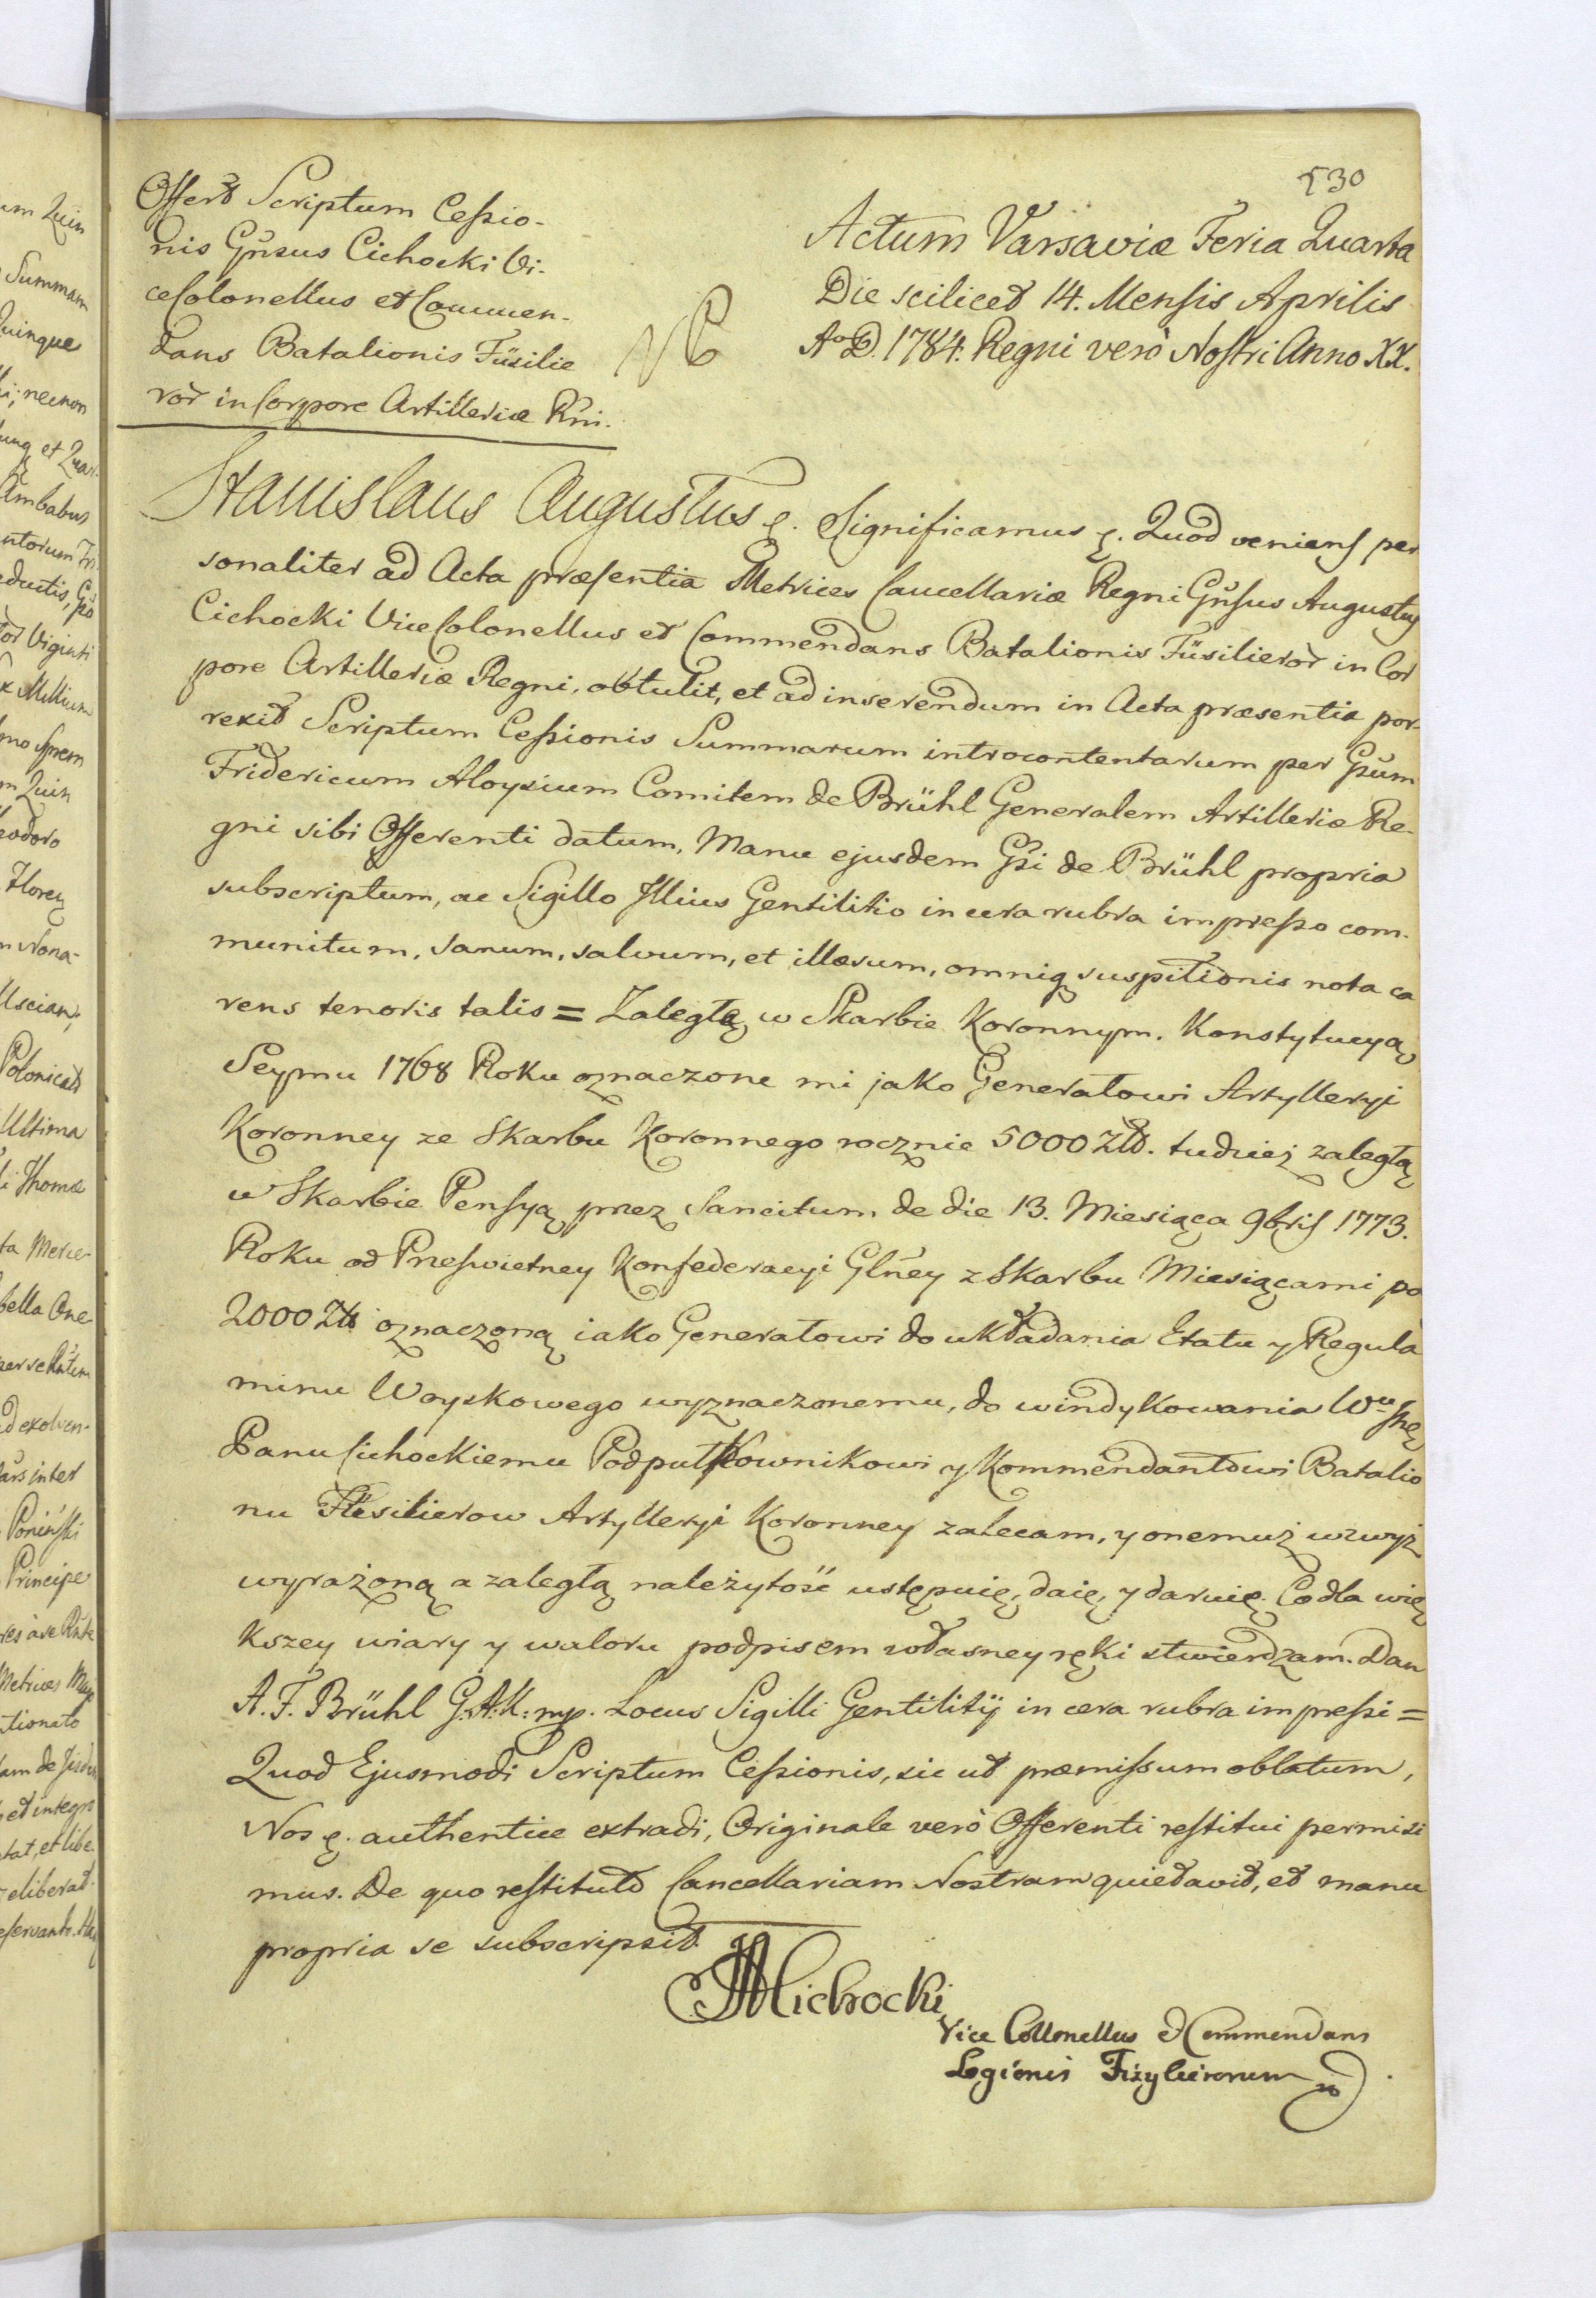 530
Offert Scriptum Cessio-
nis Gńsus Cichocki Vi-
ceColonellus et Commen-
dans Batalionis Füsilie
ror in Corpore Artilleriæ Rńi.
NB
Actum Varsaviæ Feria Quarta
Die scilicet 14. Mensis Aprilis
Aº D. 1784. Regni verò Nostri Anno XX.
Stanislaus Augustus ę. Significamus ę. Quod veniens per
sonaliter ad Acta præsentia Metrices Cancellariæ Regni Gńsus Augustus
Cichocki ViceColonellus et Commendans Batalionis Füsilieror in Cor
pore Artilleriæ Regni, obtulit, et ad inserendum in Acta præsentia por-
rexit Scriptum Cessionis Summarum introcontentarum per Gsum
Fridericum Aloysium Comitem de Brühl Generalem Artilleriæ Re-
gni sibi Offerenti datum, Manu ejusdem Gsi de Brühl propria
subscriptum, ac Sigillo Illius Gentilitio in cera rubra impresso com-
munitum, sanum, salvum, et illæsum, omniq suspitionis nota ca
rens tenoris talis = Zaległą w Skarbie Koronnym. Konstytucyą
Seymu 1768 Roku oznaczone mi jako Generałowi Artylleryi
Koronney ze Skarbu Koronnego rocznie 5000 Złt. tudziej zaległą
w Skarbie Pensyą przez Sancitum de die 13. Miesiąca 9bris 1773.
Roku od Prześwietney Konfederacyi Głney z Skarbu Miesiącami po
2000 Złt oznaczoną iako Generałowi do układania Etatu y Regula
minu Woyskowego wyznaczonemu, do windykowania Wu
Panu Cichockiemu Podpułkownikowi y Kommendantowi Batalio
nu Füsilierow Artylleryi Koronney zalecam, y onemuż wzwyż
wyrażoną a zaległą należytość ustępuię, daię, y daruię. Co dla wię
kszey wiary y waloru podpisem własney ręki stwierdzam. Dan
A. F. Brühl G. A. K: mp. Locus Sigilli Gentilitij in cera rubra impressi =
Quod Ejusmodi Scriptum Cessionis, sic ut præmissum oblatum,
Nos ę. authentice extradi, Originale verò Offerenti restitui permisi
mus. De quo restituto Cancellariam Nostram quietavit, et manu
propria se subscripsit.
Cichocki
Vice Collonellus et Commendans
Legionis Fizylierorum